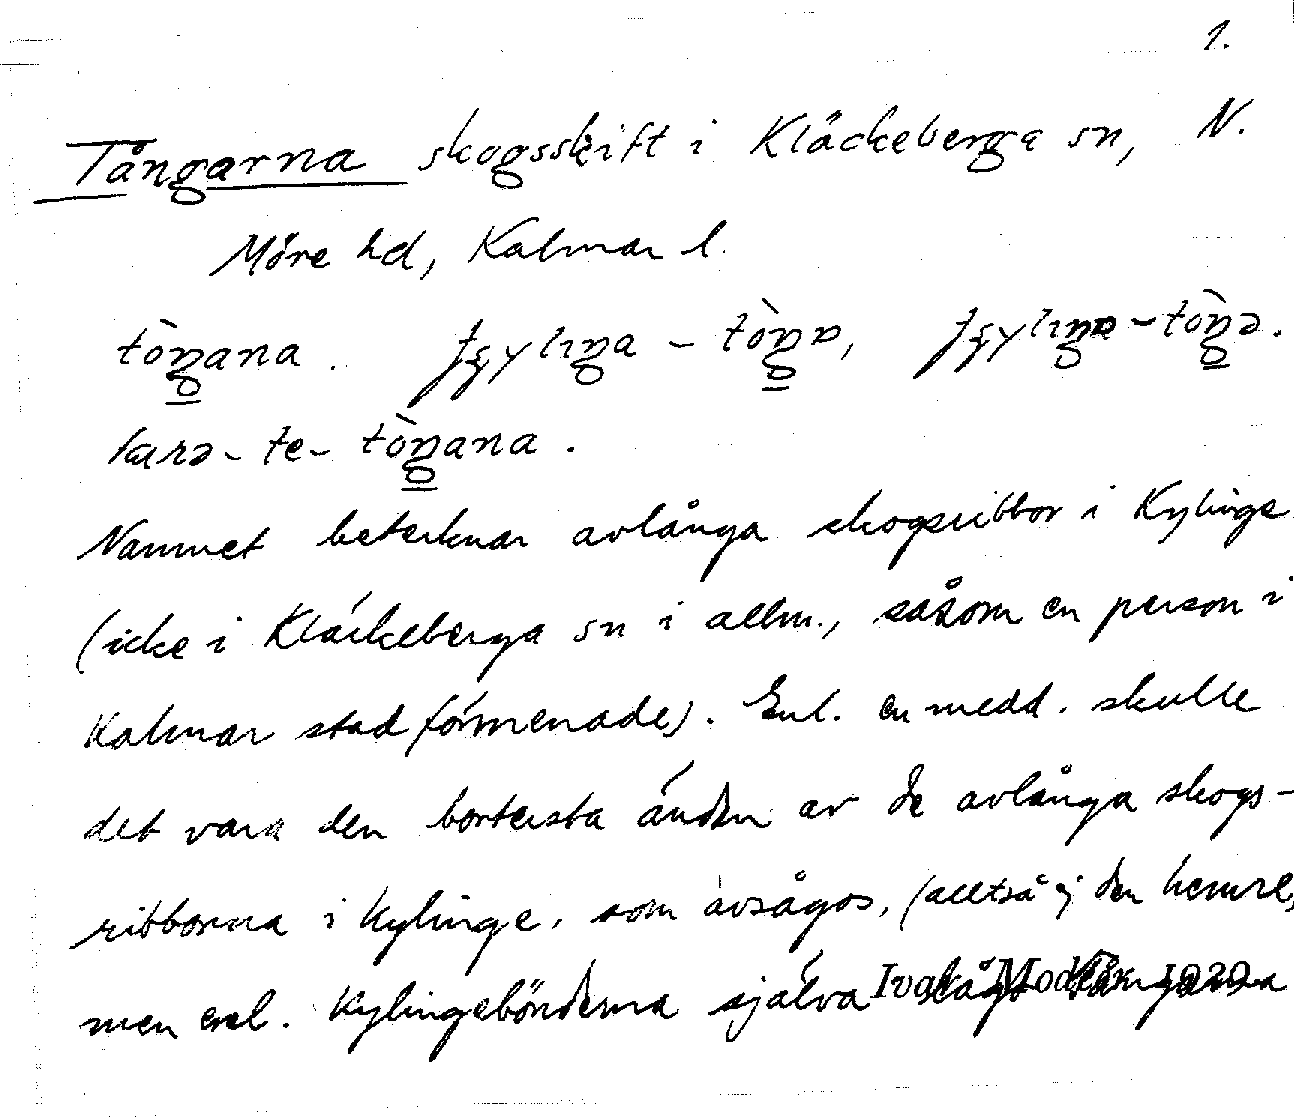 1.
Tångarna skogsskift i Kläckeberga sn, N.
Möre hd, Kalmar l.
tòŋana. ꞔylıŋa-tòŋɒ, ꞔylıŋɒ-tòŋə.
te-tòŋana.
Namnet betecknar avlånga skogsribbor i Kylinge
(icke i Kläckeberga sn i allm., såsom en person i
Kalmar stad förmenade). Enl. en medd. skulle
det vara den bortersta änden av de avlånga skogs-
ribborna i Kylinge, som avsågos, (alltså ej den hemre,
men enl. Kylingebönderna själva Tångarna
Ivar Modéer 1929